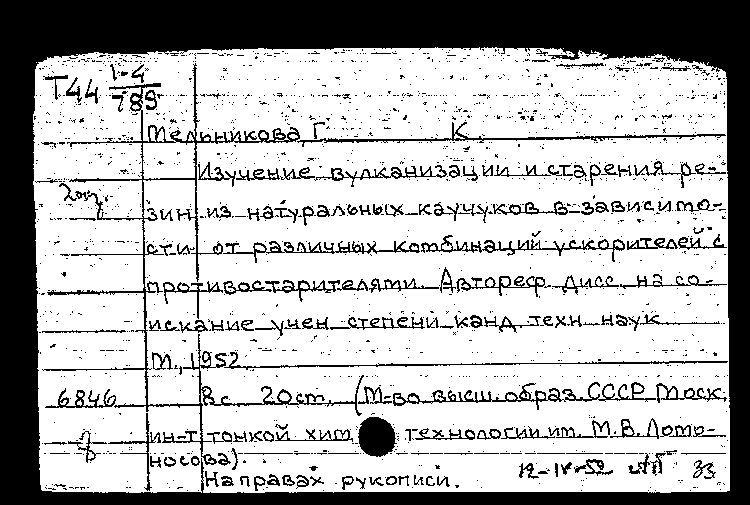 Т44 1-4
789
Мельникова, Г. К.
Изучение вулканизации и старения ре-
зин из натуральных каучуков в зависимо-
сти от различных комбинаций ускорителей с
противостарителями. Автореф. дисс. на со-
искание учен. степени канд. техн. наук
М., 1952
6846 8 с. 20 см. (М-во высш. образ. СССР Моск.
ин-т тонкой хим. технологии им. М.В. Ломо-
носова).
На правах рукописи. 12-IV-52 33